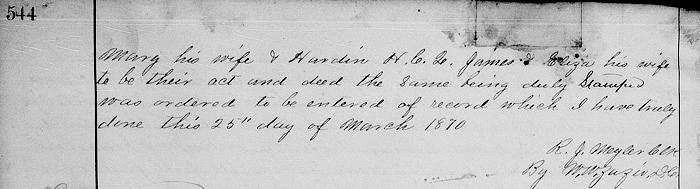 544
Mary his wife & Hardin H. C. L. James & Eliza his wife
to be their act and deed the same being duly Stamped
was ordered to be entered of record which I have truly
done this 25" day of March 1870
R. J. Meyler Clk
By W. W. D.C.